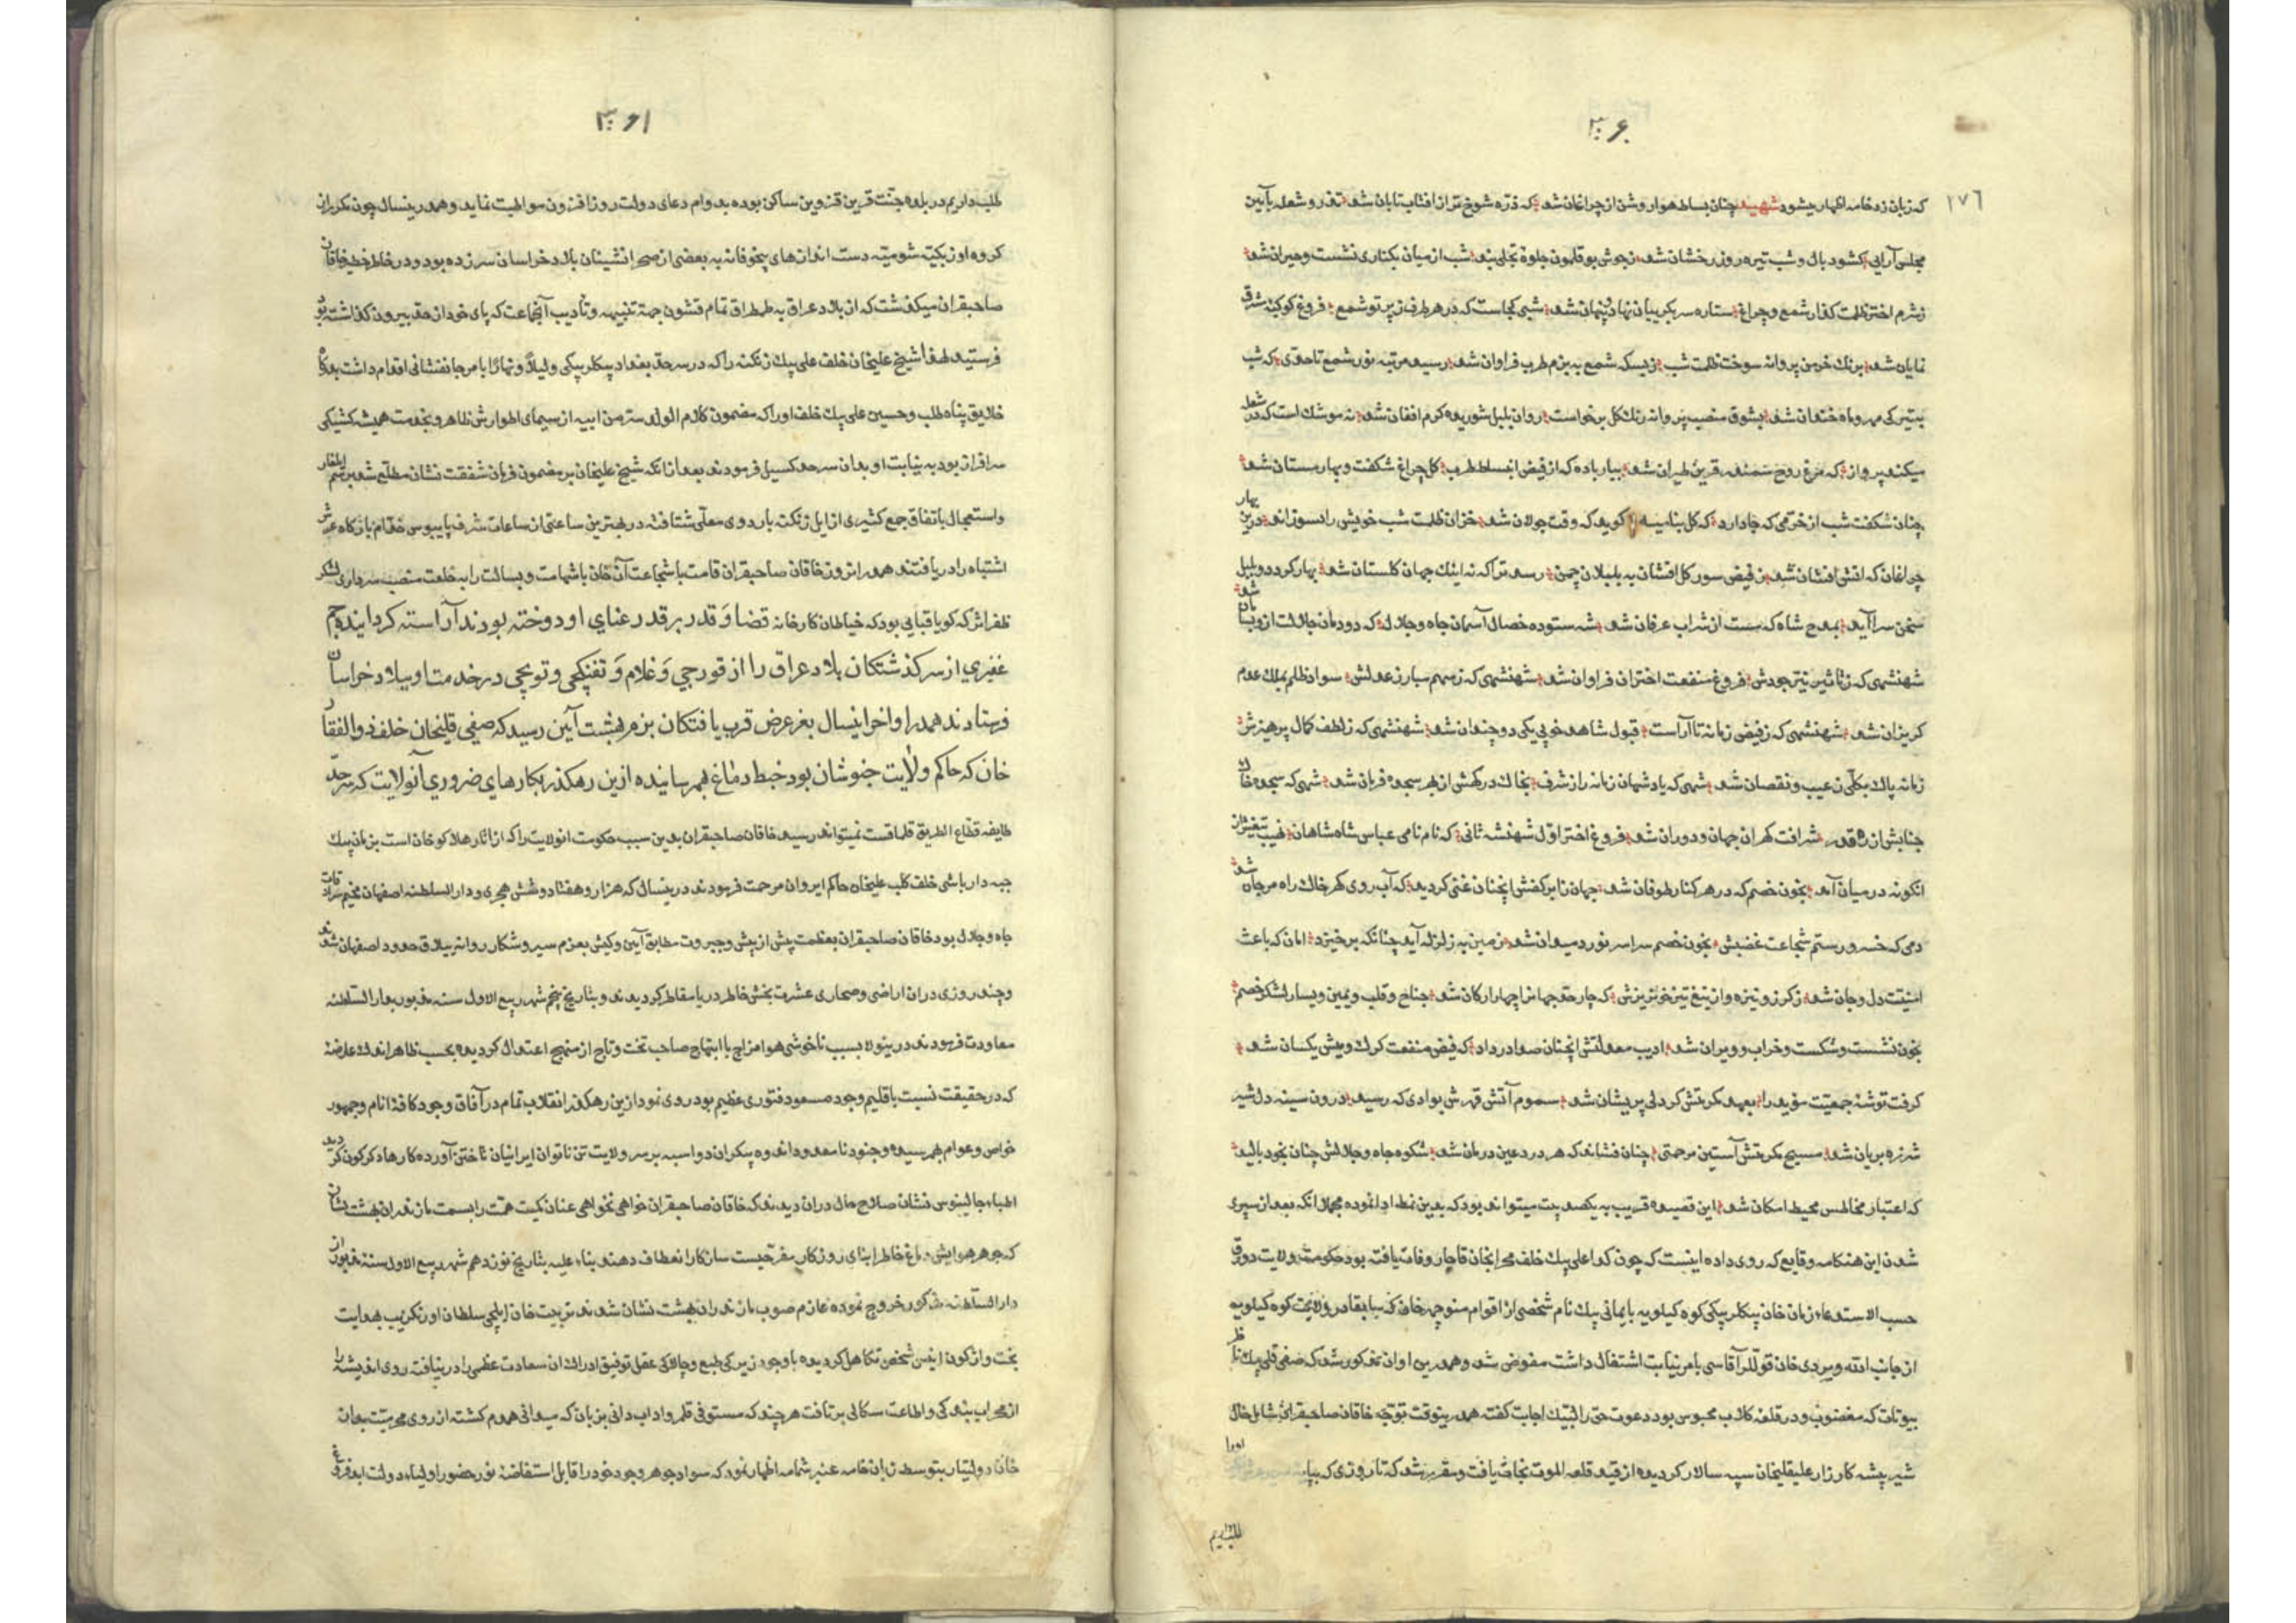 ۳۰۶
۱۷۶
که زبان زد خامه اظهار میشود چنان بساط هوا روشن از چراغان شد که ذره شوخ تر از آفتاب تابان شد تذرو شعله بآیین
مجلس آرایی کشود بال و شب تیره روز رخشان شد ز جوش بوقلمون جلوهٔ تجلی شب از میان بکناری نشست و حیران شد
ز شرم اختر ظلمت کداز شمع و چراغ ستاره سر بکریبان نهاد و پنهان شد شبی کجاست که در هر طرف ز پرتو شمع فروغ کوکبه
نمایان شد برنک خرمن پروانه سوخت ظلمت شب ز بسکه شمع به بزم طرب فراوان شد رسید مرتبه نور شمع تا حدی که شب
بتیرکی مهر و ماه خندان شد بشوق منصب پروانه رنک کل برخاست روان بلبل شوریده کرم افغان شد نه موشک است که در شعله
میکند پرواز که مرغ روح سمندر قرین طیران شد بیار باده که از فیض انبساط طرب کل چراغ شکفت و بهارستان شد
چنان شکفت شب از خرمی که جا دارد که کل کوید که وقت جولان شد خزان ظلمت شب خویش را بسوزاند درین بهار
چراغان که آتش افشان شد ز فیض سور کل افشان به بلبلان چمن رسد ترا که نه اینک جهان کلستان شد بهار کردد و بلبل
سخن سرا آید بمدح شاه که مست از شراب عرفان شد شه ستوده خصال آسمان جاه و جلال که دودمان جلالت ازو
شهنشهی که ز تاثیر نیر جودش فروغ منفعت اختران فراوان شد شهنشهی که ز سهم مبارز عدلش سوار ظلم بملک عدم
کریزان شد شهنشهی که ز فیض زمانه تا آراست قبول شاهد خوبی یکی دو چندان شد شهنشهی که ز لطف کمال پرهیزش
زمانه پاک بکلی ز عیب و نقصان شد شهی که پادشهان زمانه را ز شرف بخاک درکهش از بهر سجده فرمان شد شهی که سجده خاک
جنابش از ره قدر شرافت کهر ان جهان و دوران شد فروغ اختر اول شهنشه ثانی که نام نامی عباس شاه شاهان
آنکونه در میان آمد بخون خصم که در هر کنار طوفان شد جهان ز ابر کفش آنچنان غنی کردید که آب روی کهر خاک راه مرجان شد
دمی که خسرو رستم شجاعت غضبش بخون خصم سراسر نورد میدان شد زمین به زلزله آید چنانکه برخیزد امان که باعث
امنیت دل و جان شد ز کرز و نیزه و از تیغ تیز خونریزش که چار حد جهانرا چهار ارکان شد جناح و قلب و یمین و یسار لشکر خصم
بخون نشست و شکست و خراب و ویران شد ادیب معدلتش آنچنان صدا در داد که فیض منفعت کرک و میش یکسان شد
کرفت توشهٔ جمعیت مؤبد را بعهد مکرمتش کر دلی پریشان شد سموم آتش قهرش بوادی که رسید درون سینه دل شیر
شرزه بریان شد مسیح مکرمتش آستین مرحمتی چنان فشاند که هر درد عین درمان شد شکوه جاه و جلالش چنان بخود بالید
که اعتبار مخالفش محیط امکان شد این قصیده قریب به یکصد بیت میتواند بود که بدین نمط ادا نموده مجملا آنکه بعد از سپری
شدن این هنکامه وقایع که روی داده اینست که چون کدا علی بیک خلف محرابخان قاجار وفات یافته بود حکومت ولایت دورق
حسب الاستدعاء زمان خان بیکلربیکی کوه کیلویه بایمانی بیک نام شخصی از اقوام منوچهر خان که سابقا در ولایت کوه کیلویه
از جانب الله ویردی خان قوللر آقاسی بامر نیابت اشتغال داشت مفوض شد و همدرین اوان مذکور شد که صفی قلی بیک ناظر
بیوتات که مغضوب و در قلعه کلاب محبوس بود دعوت حق را لبیک اجابت کفته همدرینوقت توجه خاقان صاحبقران شامل حال
شیر بیشه کارزار علیقلیخان سپه سالار کردیده از قید قلعه الموت نجات یافت و مقرر شد که تا روزی که اورا
۳۰۶۱
طلب داریم در بلده جنت قرین قزوین ساکن بوده بدوام دعای دولت روز افزون مواظبت نماید و همدرینسال چون مکرر از
کروه اوزبکیه شومیه دست اندازهای بخوفانه به بعضی از صحرا نشینان بلاد خراسان سرزده بود و در خاطر خطیر خاقان
صاحبقران میکذشت که از بلاد عراق به طمطراق تمام قشون جهة تنبیهه و تأدیب آنجماعت که پای خود از حد بیرون کذاشته بود
فرستند لهذا شیخ علیخان خلف علی بیک زنکنه را که در سرحد بغداد بیکلربیکی و لیلا و نهارا بامر جانفشانی اقدام داشت بدرکاه
خلایق پناه طلب و حسین علی بیک خلف او را که مضمون کلام الولد سر من ابیه از سیمای اطوارش ظاهر و بخدمت همیشه کشیکی
سرافراز بود به نیابت او بدان سرحد کسیل فرمودند بعد از آنکه شیخ علیخان بر مضمون فرمان شفقت نشان مطلع شد برسم ایلغار
و استعجال باتفاق جمع کثیری از ایل زنکنه باردوی معلی شتافته در بهترین ساعتی از ساعات شرف پایبوس خدام بارکاه عرش
اشتباه را دریافتند همدرانروز خاقان صاحبقران قامت با شجاعت آن خان با شهامت و بسالت را به خلعت منصب سرداری لشکر
ظفر اثر که کویا قبایی بود که خیاطان کارخانه قضا و قدر بر قد رعنای او دوخته بودند آراسته کردانیده جم
غفیری از سرکذشتکان بلاد عراق را از قورچی و غلام و تفنکچی و توپچی در خدمت او ببلاد خراسان
فرستادند همدر اواخر اینسال بعز عرض قرب یافتکان بزم بهشت آیین رسید که صفی قلیخان خلف ذوالفقار
خان که حاکم ولایت خبوشان بود خبط دماغ بهم رسانیده ازین رهکذر بکارهای ضروری آنولایت که سرحد
طایفه قطاع الطریق قلماقست نمیتواند رسید خاقان صاحبقران بدین سبب حکومت انولایت را که از آثار هلاکو خان است بزمان بیک
جبه دار باشی خلف کلب علیخان حاکم ایروان مرحمت فرمودند درینسال که هزار و هفتاد و شش هجری و دار السلطنه اصفهان مخیم سرادقات
جاه و جلال بود خاقان صاحبقران بعظمت پیش از پیش و جبروت مطابق آیین و کیش بعزم سیر و شکار روانه ییلاق حدود اصفهان شدند
و چند روزی دران اراضی و صحاری عشرت بخش خاطر دریا مقاطر کردیدند و بتاریخ پنجم شهر ربیع الاول سنه مذبور بدار السلطنه
معاودت فرمودند درینولا بسبب ناخوشی هوا مزاج با ابتهاج صاحب تخت و تاج از منهج اعتدال کردیده بحسب ظاهر اندک عارضهٔ
که در حقیقت نسبت باقلیم وجود مسعود فتوری عظیم بود روی نمود ازین رهکذر انقلاب تمام در آفاق وجود کافهٔ انام و جمهور
خواص و عوام بهم رسیده و جنود نامعدود اندوه بیکران دو اسبه بر سر ولایت تن ناتوان ایرانیان تاختن آورده کارها دکرکون کردید
اطباء جالینوس نشان صلاح حال دران دیدند که خاقان صاحبقران خواهی نخواهی عنان کمیت همت را بسمت مازندران بهشت نشان
که جوهر هوایش دماغ خاطر ابنای روزکار مفرحیست سازکار انعطاف دهند بناء علیه بتاریخ نوزدهم شهر ربیع الاول سنهٔ مذبور از
دار السلطنه مذکور خروج نموده عازم صوب مازندران بهشت نشان شدند تربیت خان ایلچی سلطان اورنکزیب بهدایت
بخت واژکون انیس شخص تکاهل کردیده با وجود زیرکی طبع و چالاکی عقل توفیق ادراک ان سعادت عظمی را در نیافته روی اندیشه را
از محراب بندکی و اطاعت سکالی برتافت هر چند که مستوفی قلمرو اداب دانی بزبان که میدانی همدم کشته از روی محبت بدان
خان دولتیار بتوسط زبان خامه عنبر شمامه اظهار نمود که سواد جوهر وجود خود را قابل استفاضهٔ نور حضور اولیاء دولت ابد فروغ